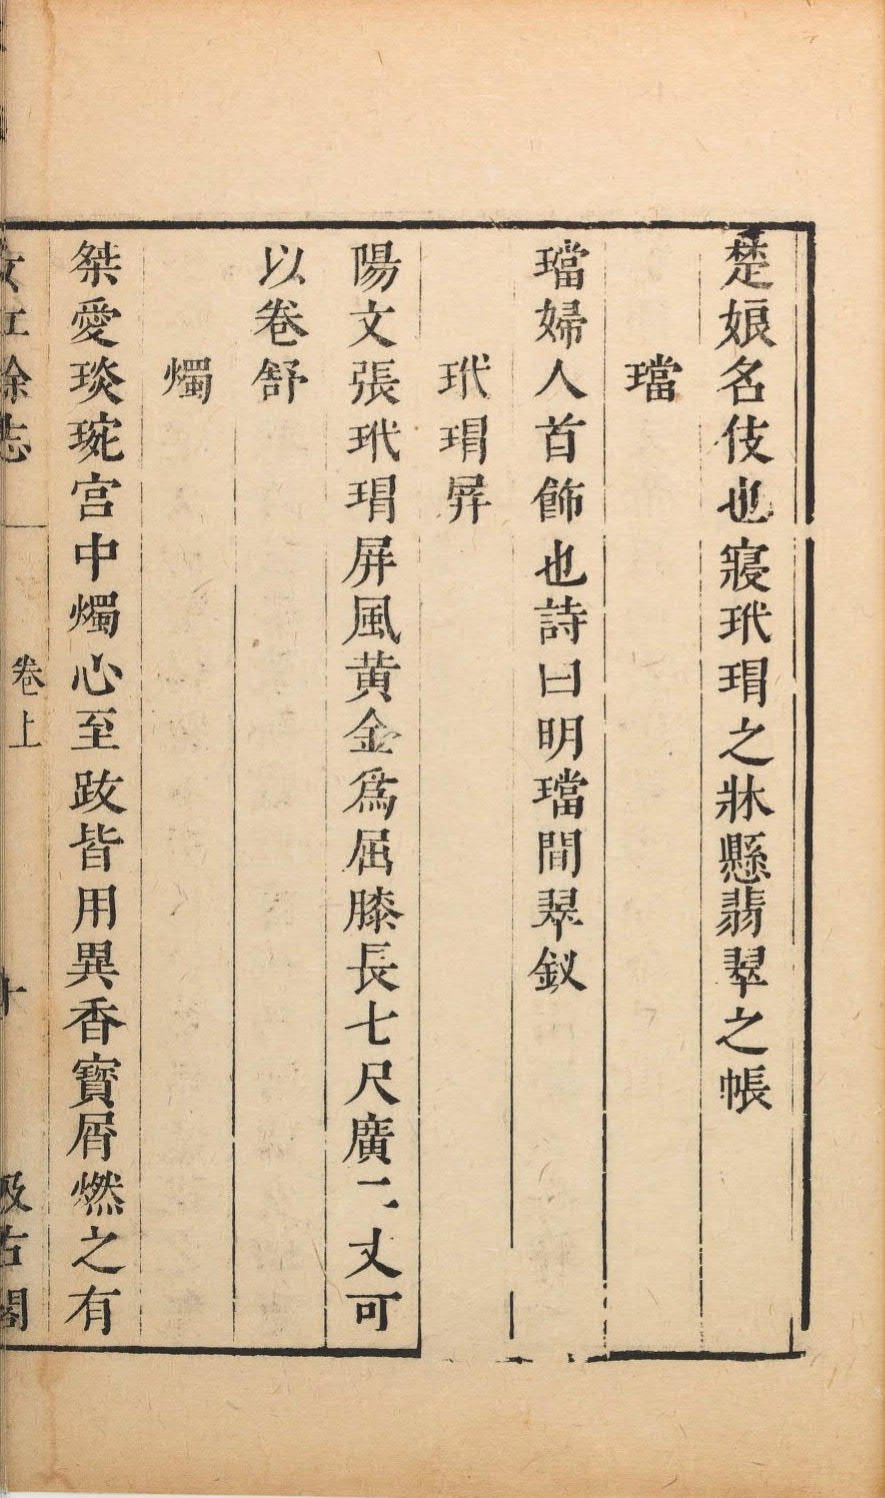 楚娘名伎也寢玳瑁之牀懸翡翠之帳
璫
璫婦人首飾也詩曰明璫間翠釵
玳瑁屏
陽文張玳瑁屏風黄金爲屈膝長七尺廣二丈可
以卷舒
燭
桀愛琰琬宫中燭心至跋皆用異香寳屑燃之有
女紅餘志
卷上
十
汲古閣